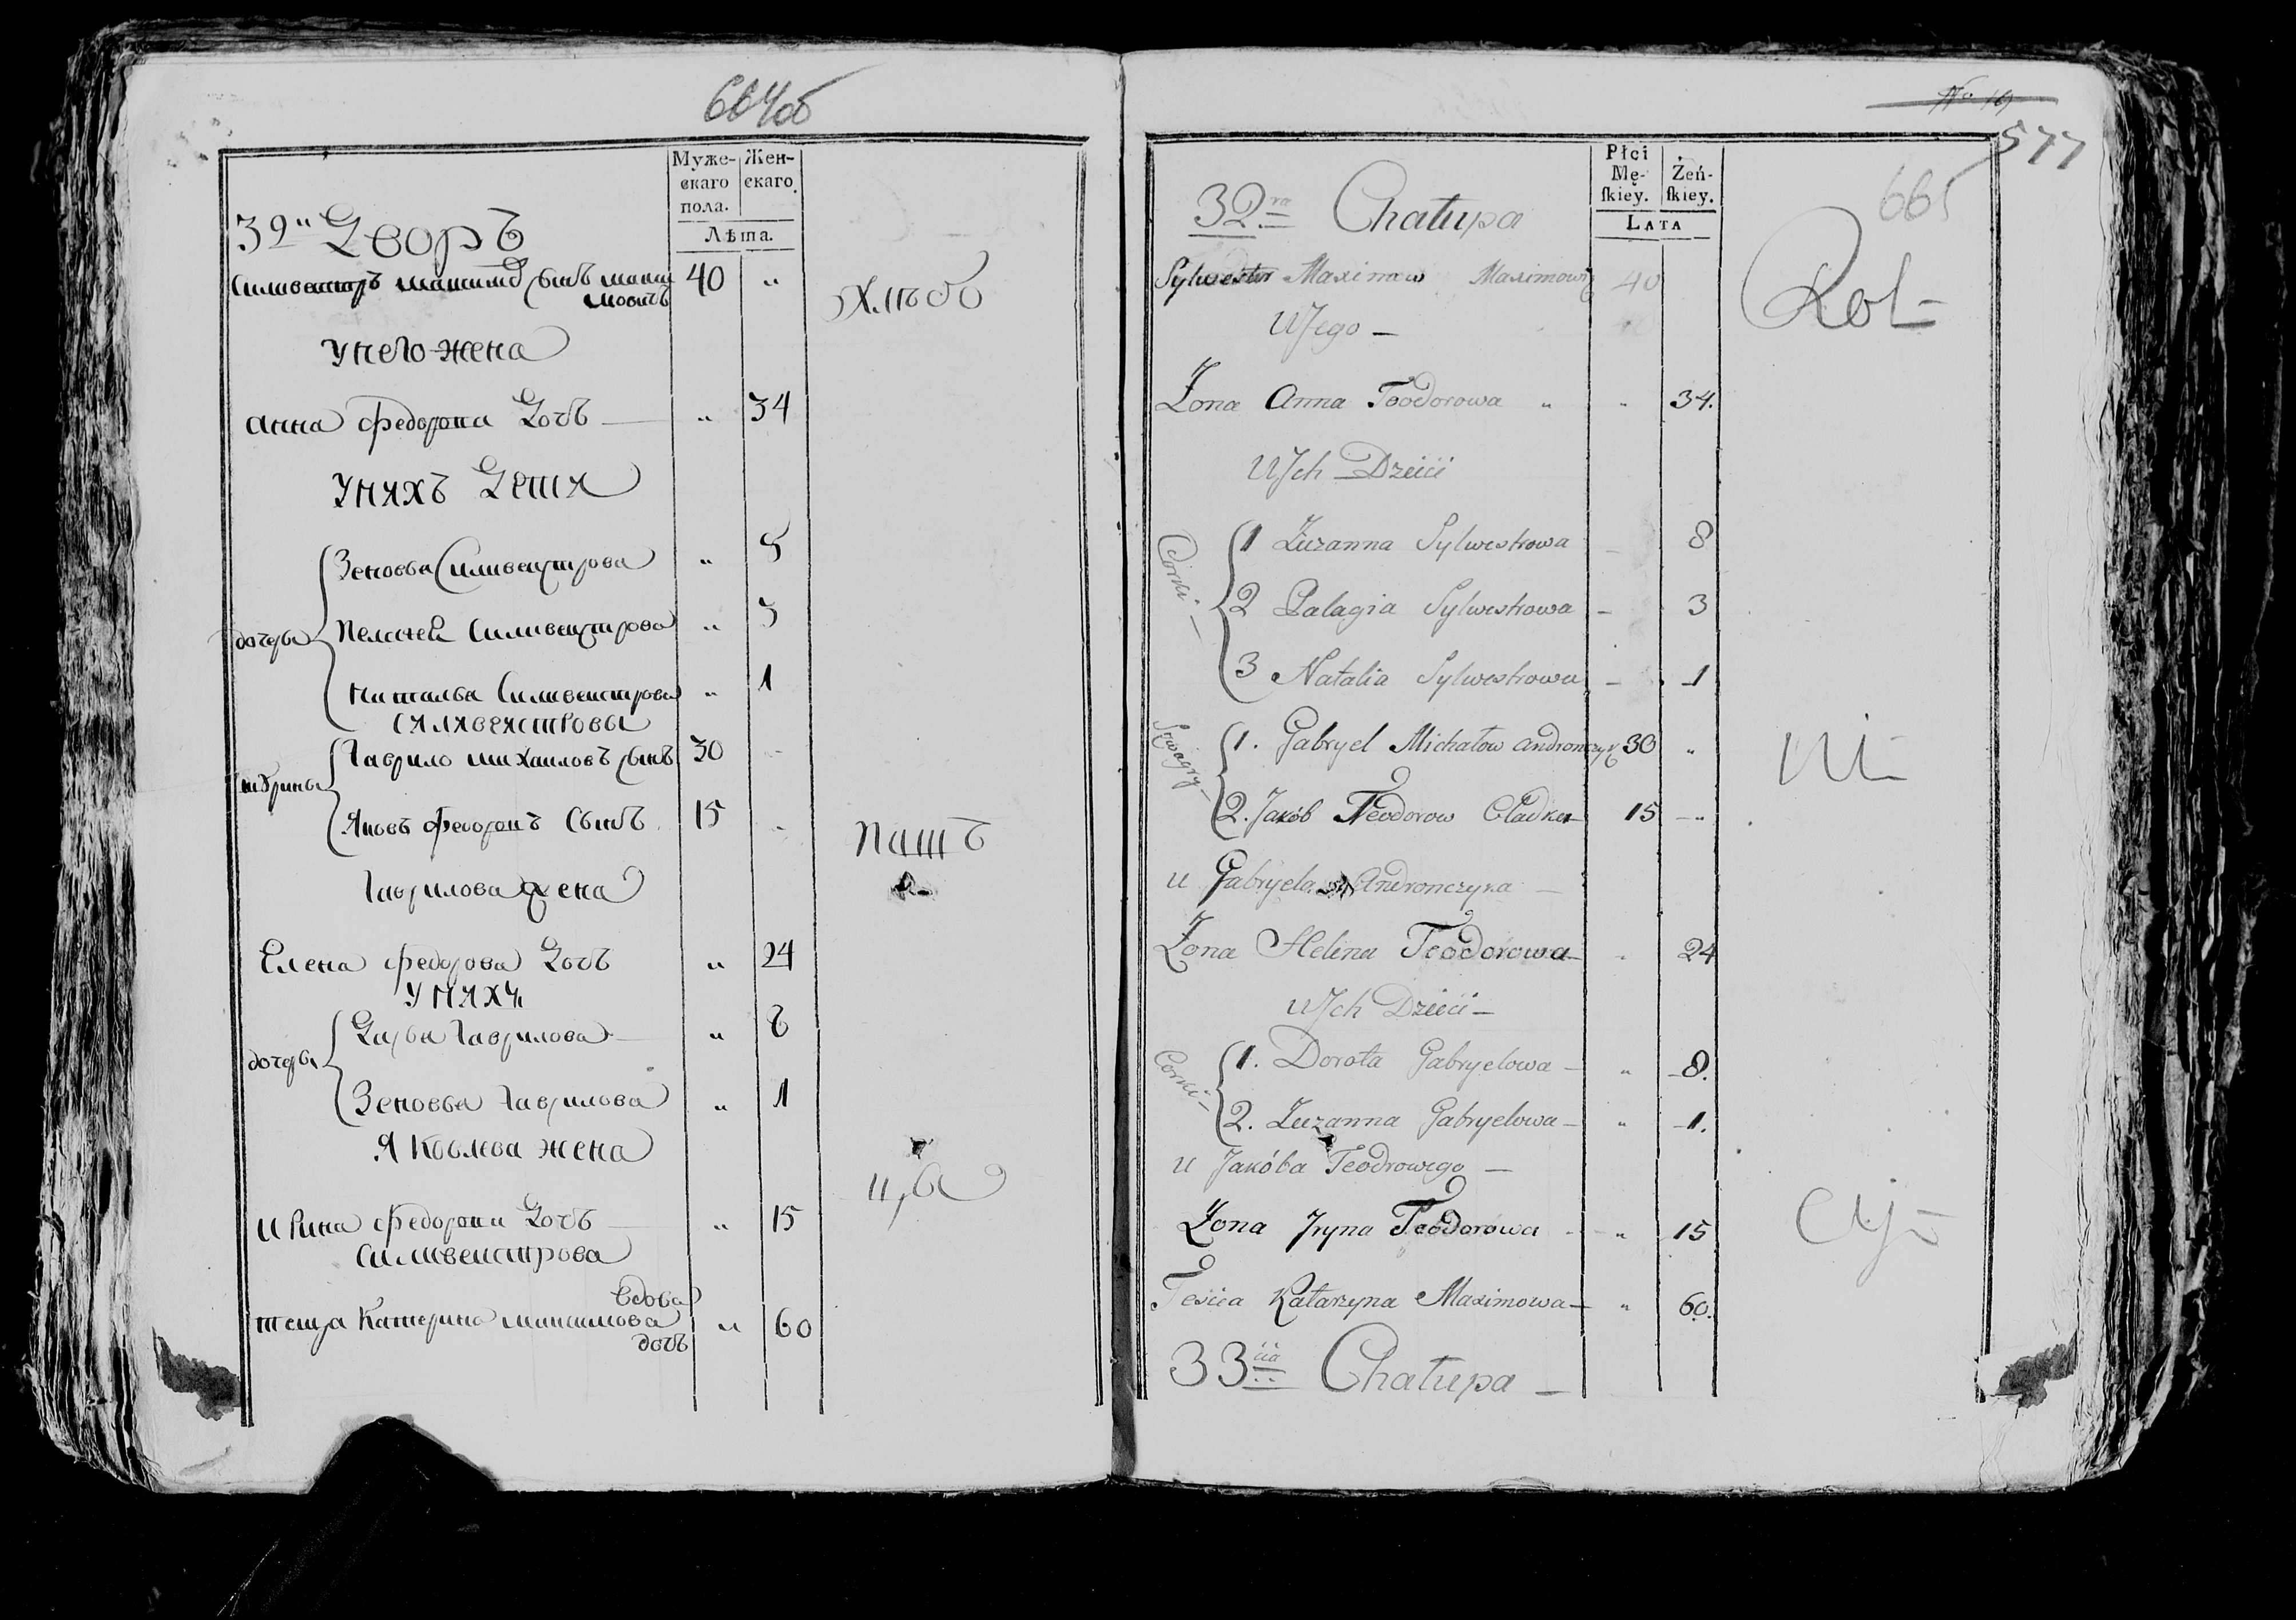 664об
Муже-
скаго
пола.
Жен-
скаго.
Лѣта.
32й Дворъ
Силивестръ Максимовъ сынъ Максимовичъ 40 „
Хлѣбо
У него жена
Анна Федорова Дочь — „ 34
У нихъ Дети
дочеры
Зеновья Силивестрова „ 8
Пелагея Силивестрова „ 3
Наталья Силивестрова „ 1
Силивестровы
шурины
Гаврило Михаиловъ сынъ 30 „
Яковъ Федоровъ Сынъ 15 „
пашъ
Гаврилова жена
Елена Федорова Дочь „ 24
У нихъ
дочеры
Дарья Гаврилова — „ 8
Зеновья Гаврилова „ 1
Яковлева жена
Ирина Федорова Дочь — „ 15
Силивестрова
вдова
теща Катерина Максимова „ 60
дочь
№ 19
577
665
Płci
Mę-
skiey.
Żeń-
skiey.
LATA
32ra Chałupa
Sylwester Maximow Maximowicz 40
Rol-
U Jego —
Żona Anna Teodorowa „ „ 34.
U Jch Dzieci
Corki —
1 Zuzanna Sylwestrowa — 8
2 Palagia Sylwestrowa — 3
3 Natalia Sylwestrowa — 1
Szwagry —
1. Gabryel Michałow Andronczyk 30 „
ni-
2. Jakób Teodorow 15 — „
u Gabryela Andronczyka —
Żona Helena Teodorowa — „ 24
U Jch Dzieci —
Corki —
1. Dorota Gabryelowa — „ 8.
2. Zuzanna Gabryelowa — „ 1.
u Jakóba Teodrowego —
Żona Jryna Teodorowa „ 15
Teścia Katarzyna Maximowa — „ 60.
33cia Chałupa —